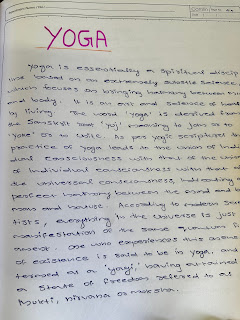 YOGA
Yoga is essentially a spiritual discip
line based on an extremely subtle science
which focuses on bringing harmony between mind
and body. It is an art and science of healthy
living. The word 'yoga' is derived from
the Sanskrit root 'yuj' meaning to join to
'yoke' or to unite. As per yogic scriptures the
practice of yoga leads to the union of indivi
dual consciousness with that of the
of individual consciousness with that
the universal consciousness, indicating a
perfect harmony between the mind and
man and nature. According to modern scien
tists, everything in the universe is just
manifestation of the same quantum fi
rmament. One who experiences this oneness
of existence is said to be in yoga, and
termed as a 'yogi', having attained
a state of freedom referred to as
Mukti, nirvana or moksha.